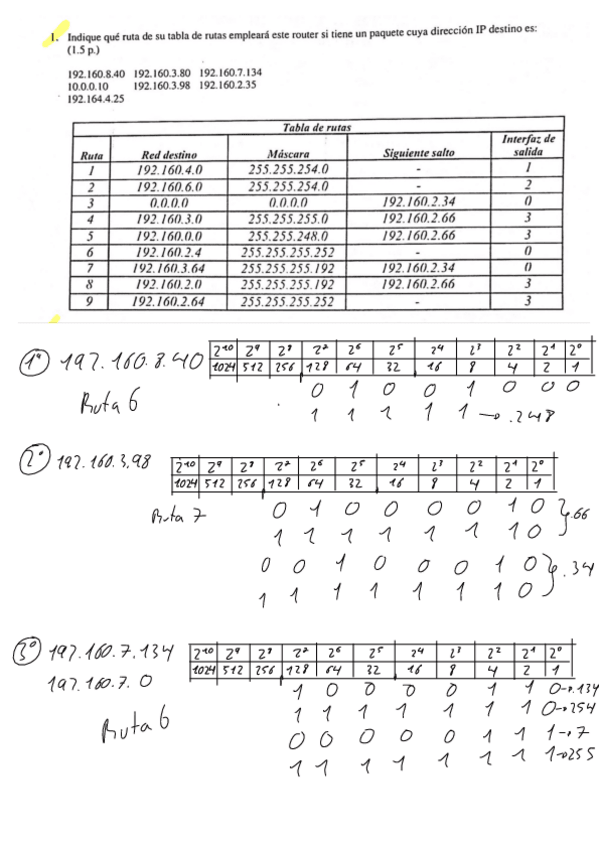 1. Indique qué ruta de su tabla de rutas empleará este router si tiene un paquete cuya dirección IP destino es:
(1.5 p.)
192.160.8.40 192.160.3.80 192.160.7.134
10.0.0.10 192.160.3.98 192.160.2.35
192.164.4.25
Tabla de rutas
Ruta Red destino Máscara Siguiente salto Interfaz de salida
1 192.160.4.0 255.255.254.0 - 1
2 192.160.6.0 255.255.254.0 - 2
3 0.0.0.0 0.0.0.0 192.160.2.34 0
4 192.160.3.0 255.255.255.0 192.160.2.66 3
5 192.160.0.0 255.255.248.0 192.160.2.66 3
6 192.160.2.4 255.255.255.252 - 0
7 192.160.3.64 255.255.255.192 192.160.2.34 0
8 192.160.2.0 255.255.255.192 192.160.2.66 3
9 192.160.2.64 255.255.255.252 - 3
1º 192.160.8.40
2¹⁰ 2⁹ 2⁸ 2⁷ 2⁶ 2⁵ 2⁴ 2³ 2² 2¹ 2⁰
1024 512 256 128 64 32 16 8 4 2 1
Ruta 6
0 1 0 0 1 0 0 0
1 1 1 1 1 → .248
2º 192.160.3.98
2¹⁰ 2⁹ 2⁸ 2⁷ 2⁶ 2⁵ 2⁴ 2³ 2² 2¹ 2⁰
1024 512 256 128 64 32 16 8 4 2 1
Ruta 7
0 1 0 0 0 0 1 0 } .66
1 1 1 1 1 1 1 0
0 0 1 0 0 0 1 0 } .34
1 1 1 1 1 1 1 0
3º 192.160.7.134
2¹⁰ 2⁹ 2⁸ 2⁷ 2⁶ 2⁵ 2⁴ 2³ 2² 2¹ 2⁰
1024 512 256 128 64 32 16 8 4 2 1
192.160.7.0
Ruta 6
1 0 0 0 0 1 1 0 → .134
1 1 1 1 1 1 1 0 → 254
0 0 0 0 0 1 1 1 → 7
1 1 1 1 1 1 1 1 → 255